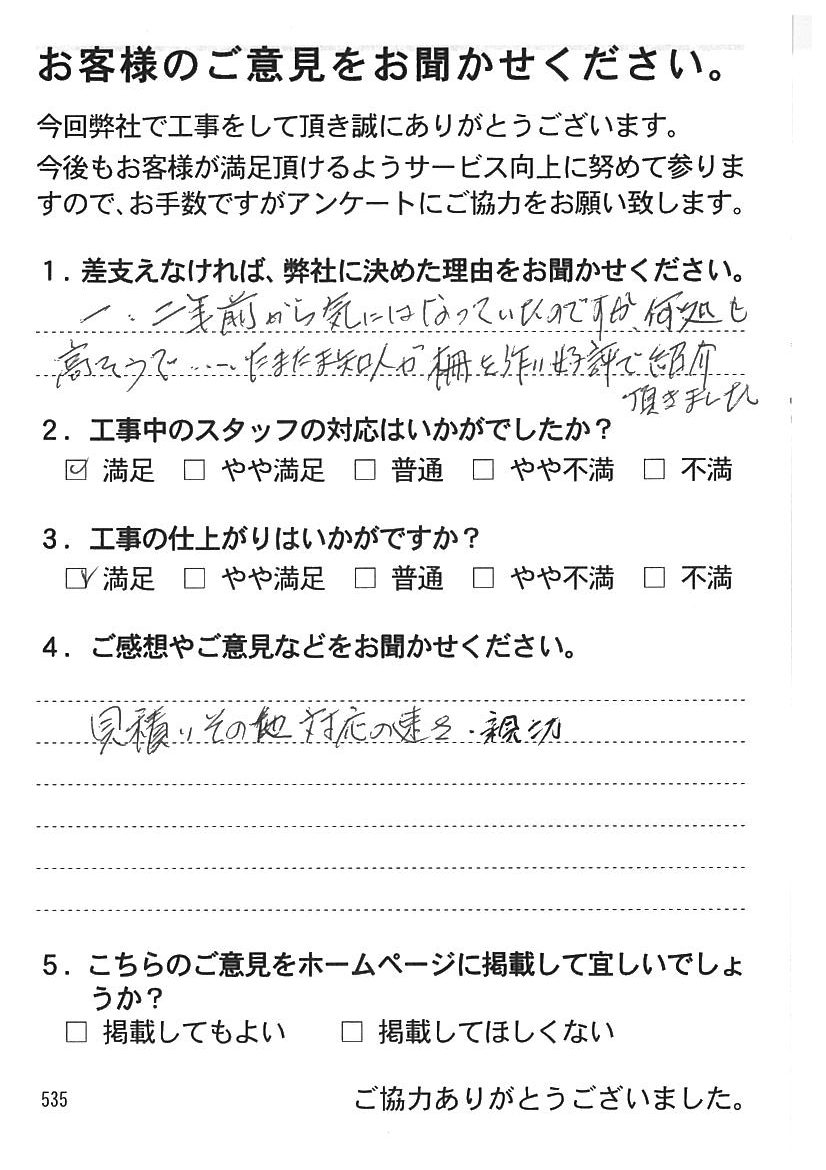 お客様のご意見をお聞かせください。
今回弊社で工事をして頂き誠にありがとうございます。
今後もお客様が満足頂けるようサービス向上に努めて参りま
すので、お手数ですがアンケートにご協力をお願い致します。
1．差支えなければ、弊社に決めた理由をお聞かせください。
一、二年前から気にはなっていたのですが、何処も
高そうで……たまたま知人が柵を作り好評で紹介
頂きました
2．工事中のスタッフの対応はいかがでしたか？
☑ 満足 □ やや満足 □ 普通 □ やや不満 □ 不満
3．工事の仕上がりはいかがですか？
☑ 満足 □ やや満足 □ 普通 □ やや不満 □ 不満
4．ご感想やご意見などをお聞かせください。
見積りその他対応の速さ・親切
5．こちらのご意見をホームページに掲載して宜しいでしょ
うか？
□ 掲載してもよい □ 掲載してほしくない
535 ご協力ありがとうございました。